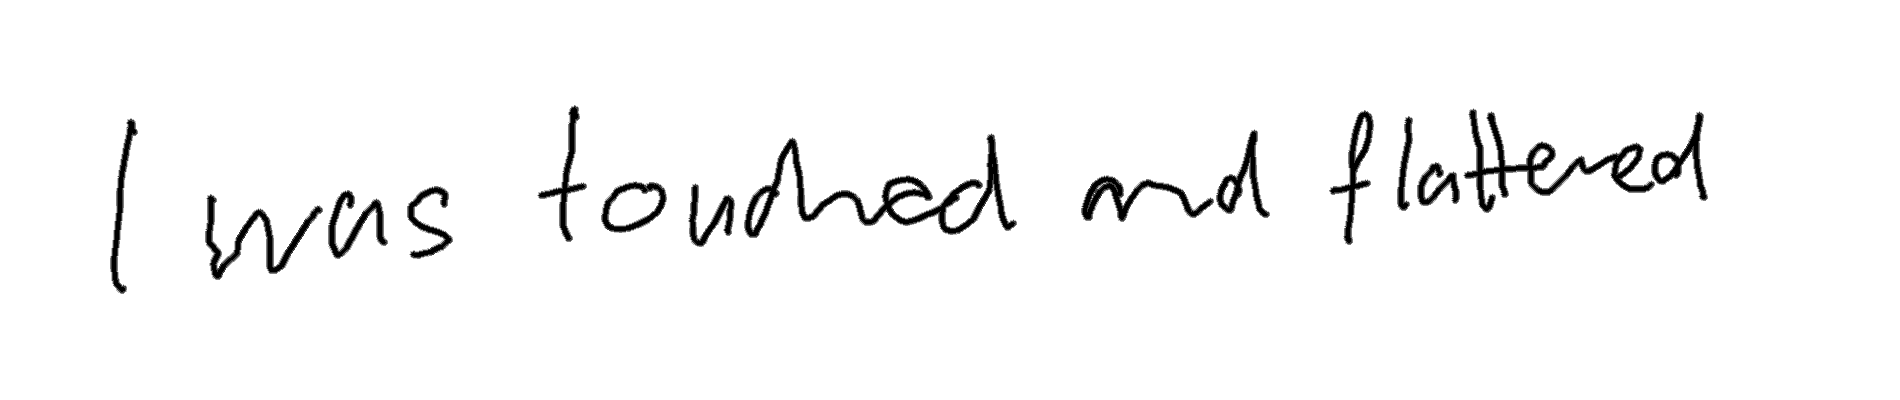 I was touched and flattered